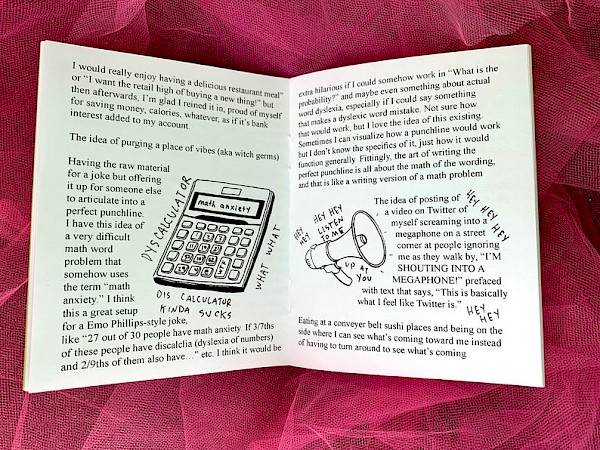 I would really enjoy having a delicious restaurant meal"
or "I want the retail high of buying a new thing!" but
then afterwards, I'm glad I reined it in, proud of myself
for saving money, calories, whatever, as if it's bank
interest added to my account.
The idea of purging a place of vibes (aka witch germs)
Having the raw material
for a joke but offering
it up for someone else
to articulate into a
perfect punchline.
I have this idea of
a very difficult
math word
problem that
somehow uses
the term "math
anxiety." I think
this a great setup
for a Emo Phillips-style joke,
like "27 out of 30 people have math anxiety. If 3/7ths
of these people have discalclia (dyslexia of numbers)
and 2/9ths of them also have…" etc. I think it would be
DYSCALCULATOR
math anxiety
WHAT WHAT
DIS CALCULATOR
KINDA SUCKS
extra hilarious if I could somehow work in "What is the
probability?" and maybe even something about actual
word dyslexia, especially if I could say something
that makes a dyslexic word mistake. Not sure how
that would work, but I love the idea of this existing.
Sometimes I can visualize how a punchline would work
but I don't know the specifics of it, just how it would
function generally. Fittingly, the art of writing the
perfect punchline is all about the math of the wording,
and that is like a writing version of a math problem
HEY HEY HEY
HEY LISTEN
TO ME
UP AT
YOU
The idea of posting of
a video on Twitter of
myself screaming into a
megaphone on a street
corner at people ignoring
me as they walk by, "I'M
SHOUTING INTO A
MEGAPHONE!" prefaced
with text that says, "This is basically
what I feel like Twitter is."
HEY HEY HEY
HEY
HEY
Eating at a conveyer belt sushi places and being on the
side where I can see what's coming toward me instead
of having to turn around to see what's coming